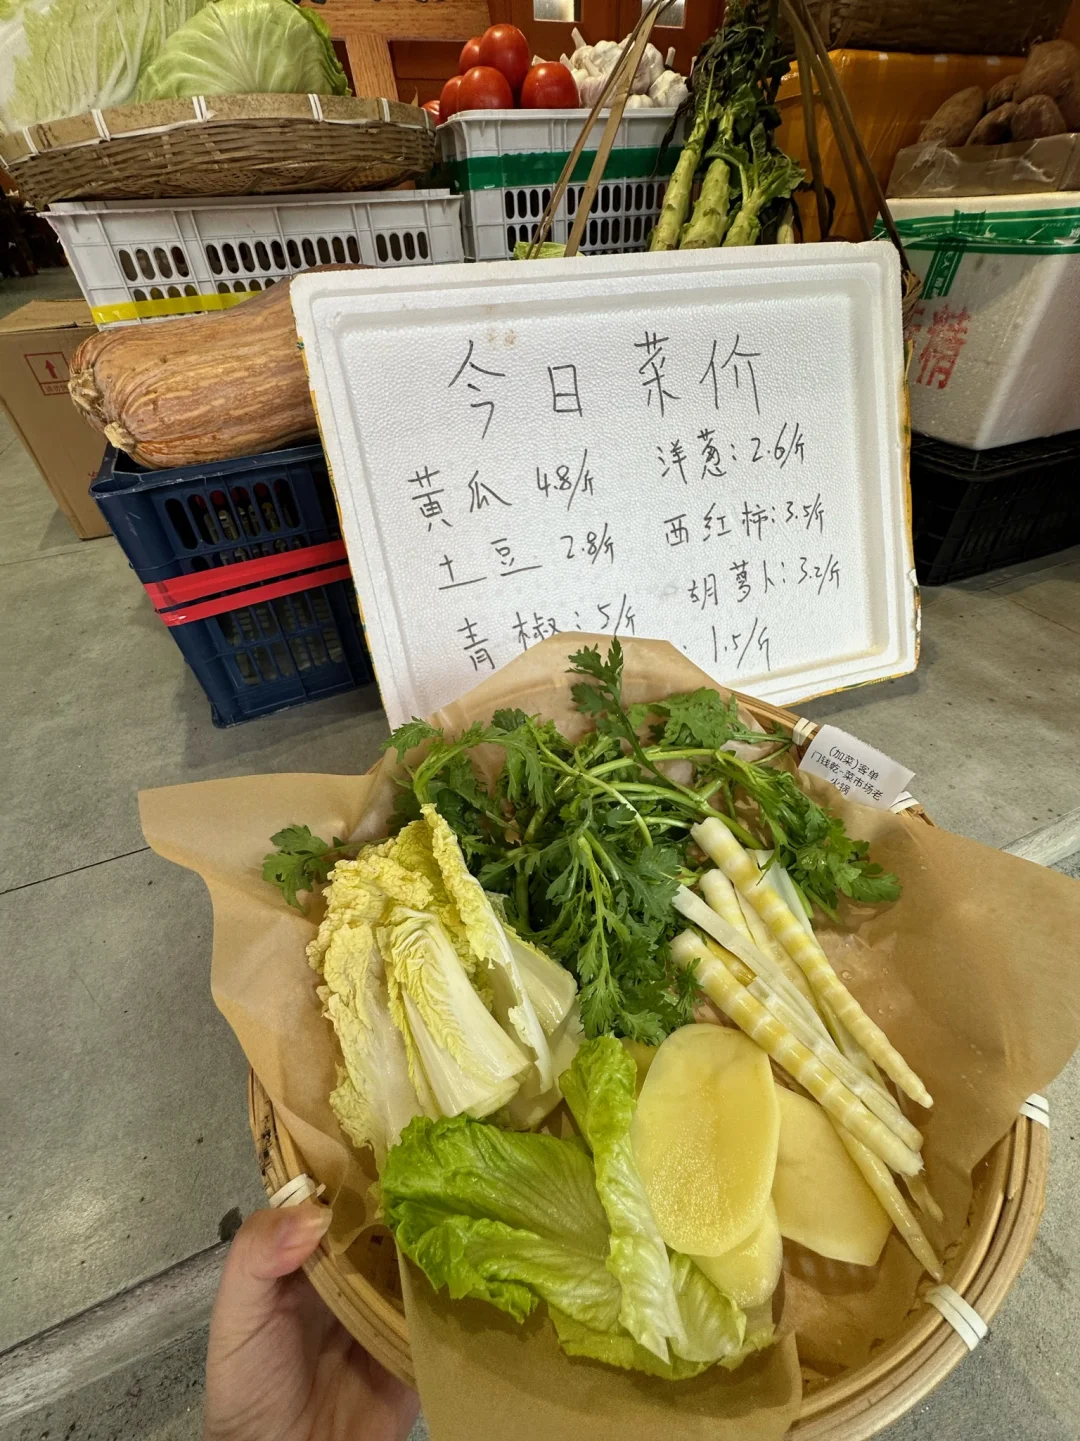 今日菜价
黄瓜 4.8/斤
洋葱：2.6/斤
土豆 2.8/斤
西红柿：3.5/斤
青椒：5/斤
胡萝卜：3.2/斤
1.5/斤
精
(加菜)客单
门钱乾-菜市场老
火锅